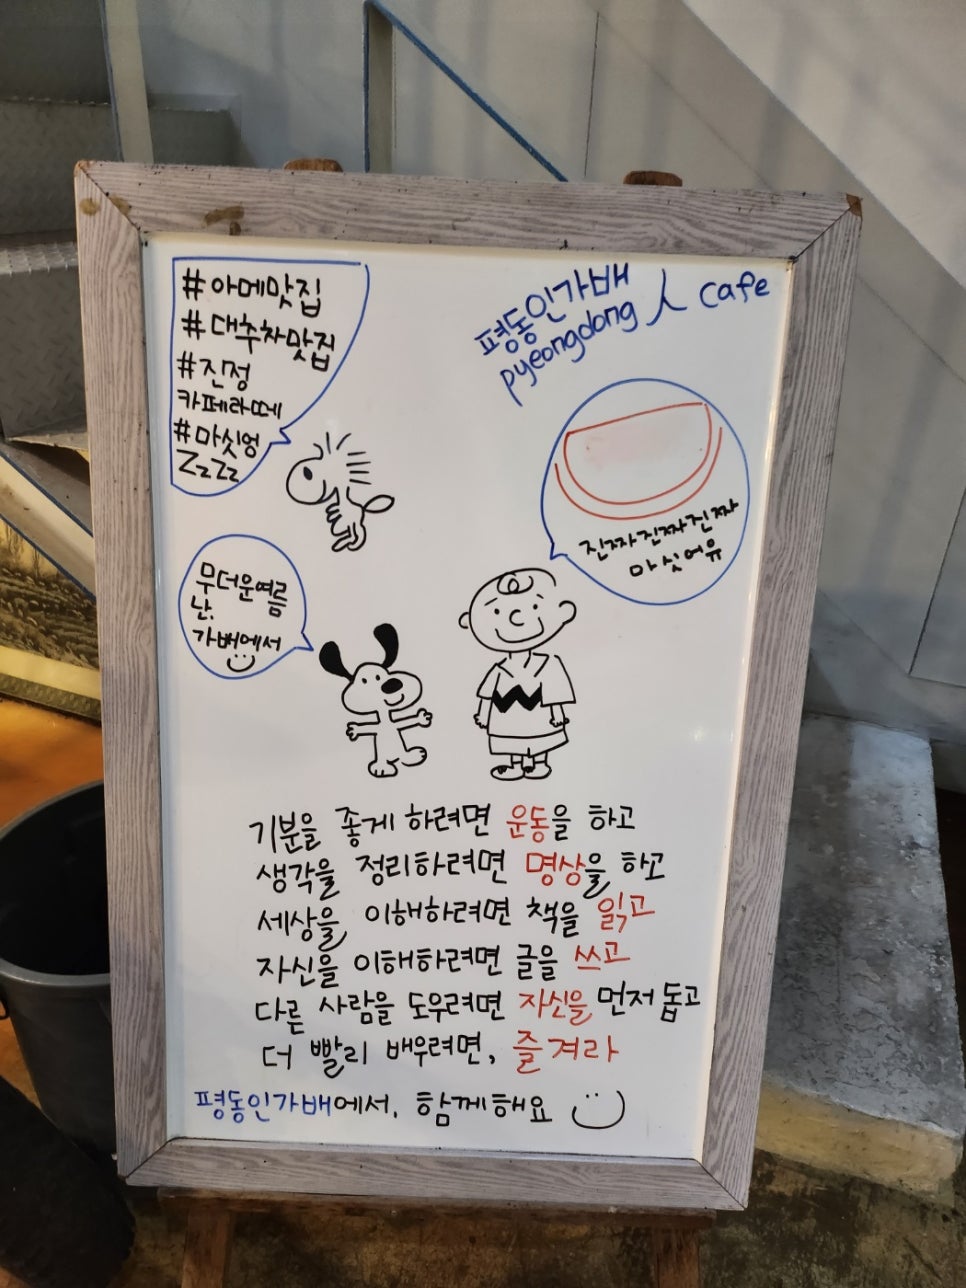 #아메맛집
#대추차맛집
#진정
카페라떼
#마싯엉
ZzZz
평동인가배
pyeongdong 人 cafe
진짜진짜진짜
마싯어유
무더운여름
난,
가배에서
기분을 좋게 하려면 운동을 하고
생각을 정리하려면 명상을 하고
세상을 이해하려면 책을 읽고
자신을 이해하려면 글을 쓰고
다른 사람을 도우려면 자신을 먼저 돕고
더 빨리 배우려면, 즐겨라
평동인가배에서, 함께해요